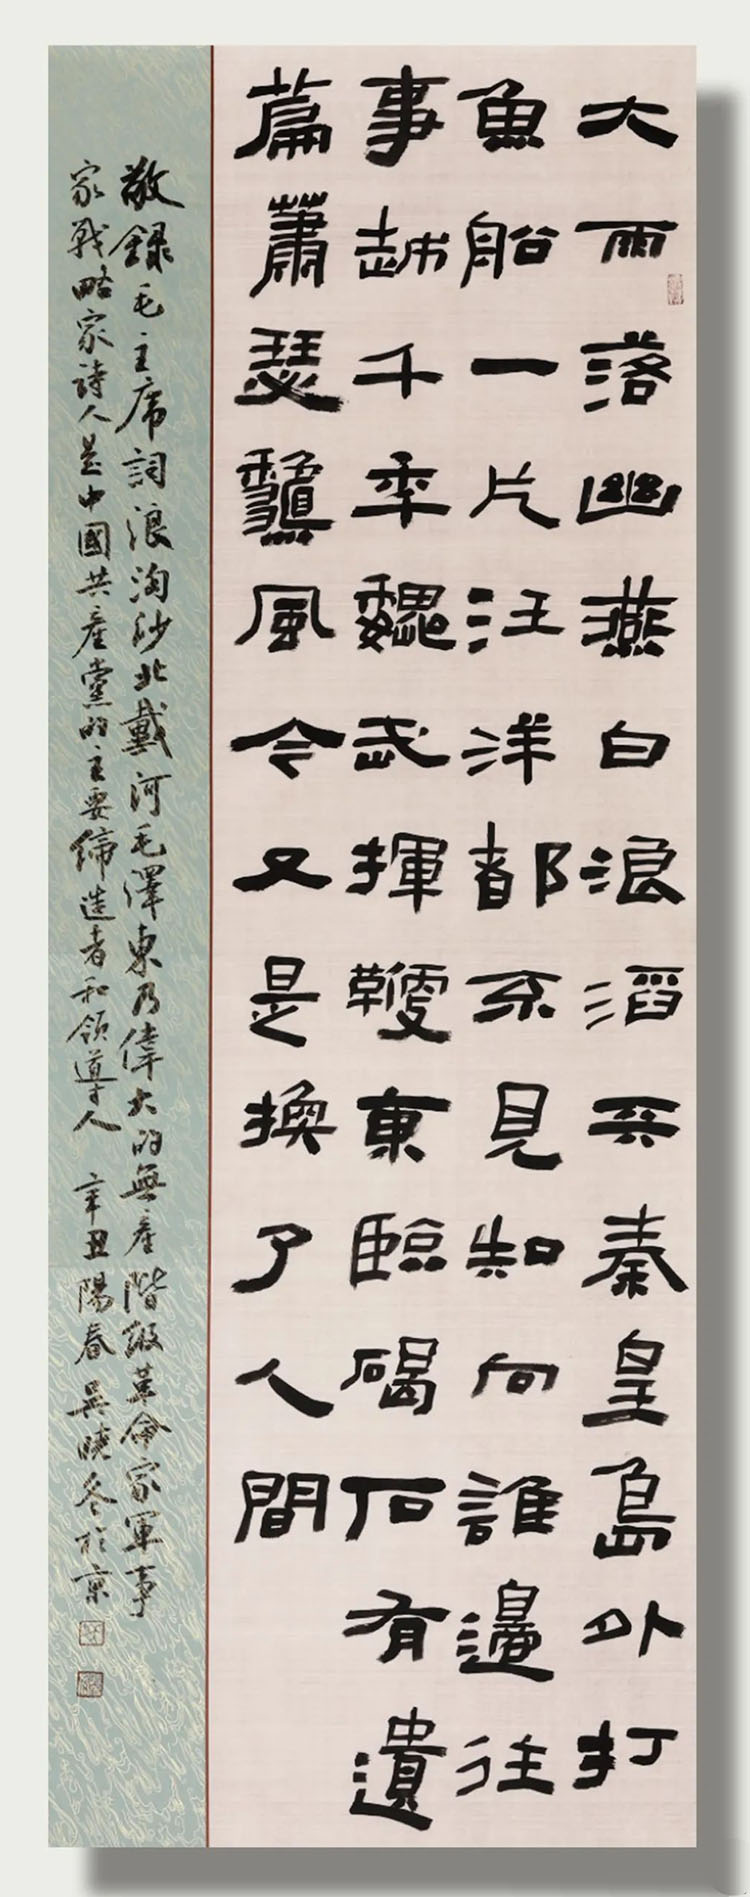 大雨落幽燕白浪滔天秦皇島外打
魚船一片汪洋都不見知向誰邊往
事越千年魏武揮鞭東臨碣石有遺
篇蕭瑟龝風今又是換了人間
敬錄毛主席詞浪淘沙北戴河毛澤東乃偉大的無產階級革命家軍事
家戰略家詩人是中國共產黨的主要締造者和領導人 辛丑陽春吳曉冬於京